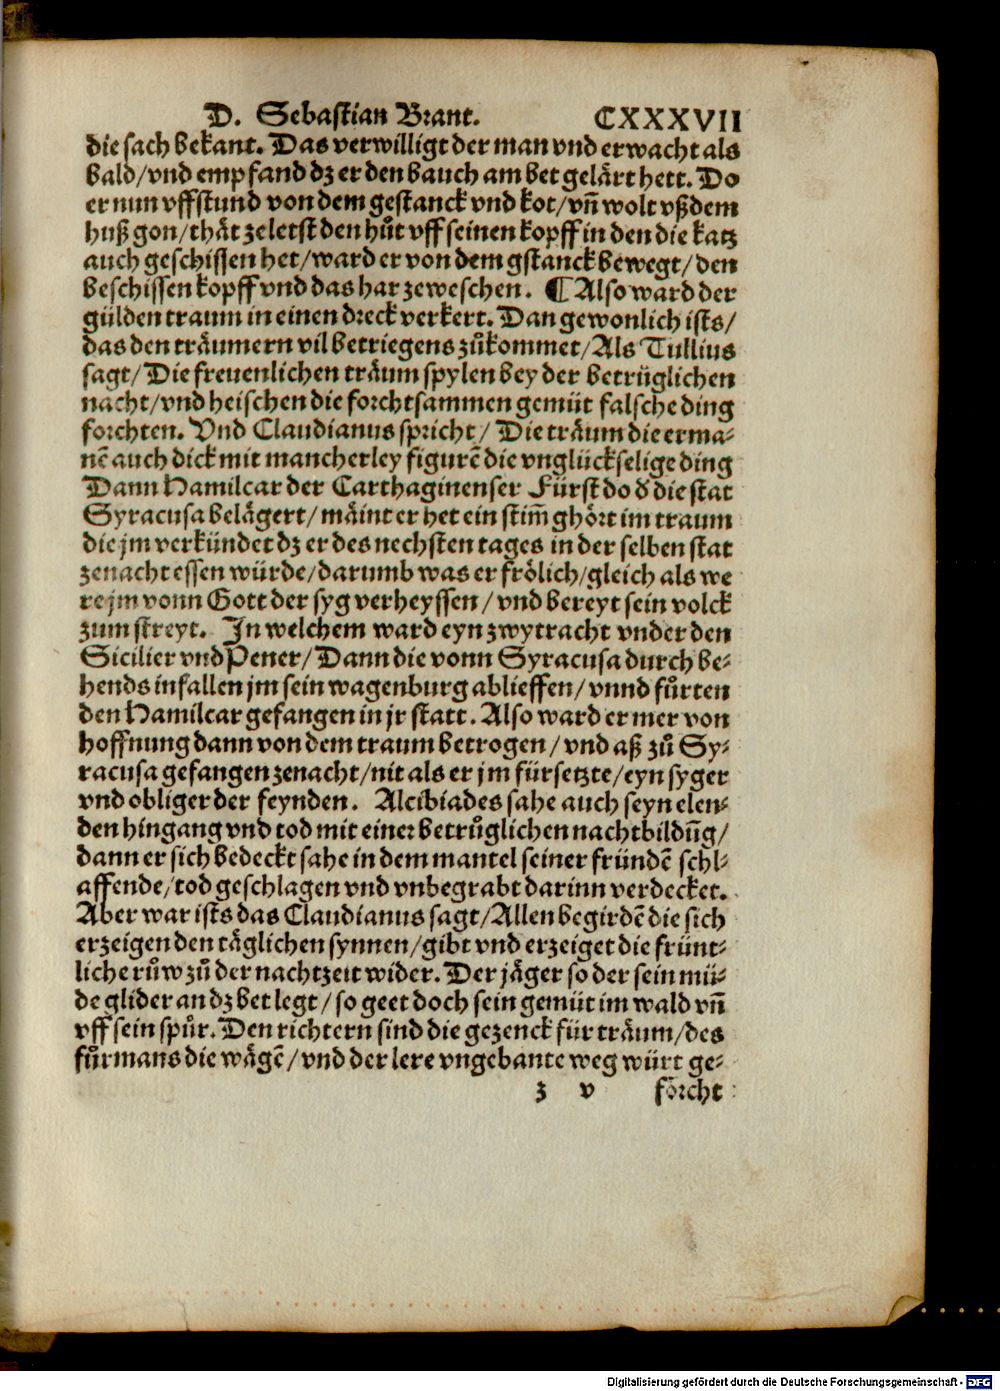 D. Sebastian Brant. CXXXVII
die sach bekant. Das verwilligt der man vnd erwacht als
bald/vnd empfand dz er den bauch am bet gelärt hett. Do
er nun vffstund von dem gestanck vnd kot/vn̄ wolt vß dem
huß gon/thät zeletst den hůt vff seinen kopff in den die katz
auch geschissen het/ward er von dem gstanck bewegt/den
beschissen kopff vnd das har zeweschen. ¶ Also ward der
gülden traum in einen dreck verkert. Dan gewonlich ists/
das den träumern vil betriegens zůkommet/Als Tullius
sagt/Die freuenlichen träum spylen bey der betrüglichen
nacht/vnd heischen die forchtsammen gemüt falsche ding
forchten. Vnd Claudianus spricht/ Die träum die erma-
nē auch dick mit mancherley figurē die vnglückselige ding
Dann Hamilcar der Carthaginenser Fürst do d̕ die stat
Syracusa belägert/mäint er het ein stim̄ ghört im traum
die jm verkündet dz er des nechsten tages in der selben stat
zenacht essen würde/darumb was er frölich/gleich als we
re jm vonn Gott der syg verheyssen/vnd bereyt sein volck
zum streyt. In welchem ward eyn zwytracht vnder den
Sicilier vnd Pener/Dann die vonn Syracusa durch be-
hends infallen jm sein wagenburg ablieffen/vnnd fůrten
den Hamilcar gefangen in jr statt. Also ward er mer von
hoffnung dann von dem traum betrogen/vnd aß zů Sy-
racusa gefangen zenacht/nit als er jm fürsetzte/eyn syger
vnd obliger der feynden. Alcibiades sahe auch seyn elen-
den hingang vnd tod mit einer betrůglichen nachtbildūg/
dann er sich bedeckt sahe in dem mantel seiner fründē schl-
affende/tod geschlagen vnd vnbegrabt darinn verdecket.
Aber war ists das Claudianus sagt/Allen begirdē die sich
erzeigen den täglichen synnen/gibt vnd erzeiget die frünt-
liche růw zů der nachtzeit wider. Der jäger so der sein mü-
de glider an dz bet legt/so geet doch sein gemüt im wald vn̄
vff sein spůr. Den richtern sind die gezenck für träum/des
fůrmans die wägē/vnd der lere vngebante weg würt ge-
z v förcht
Digitalisierung gefördert durch die Deutsche Forschungsgemeinschaft - DFG